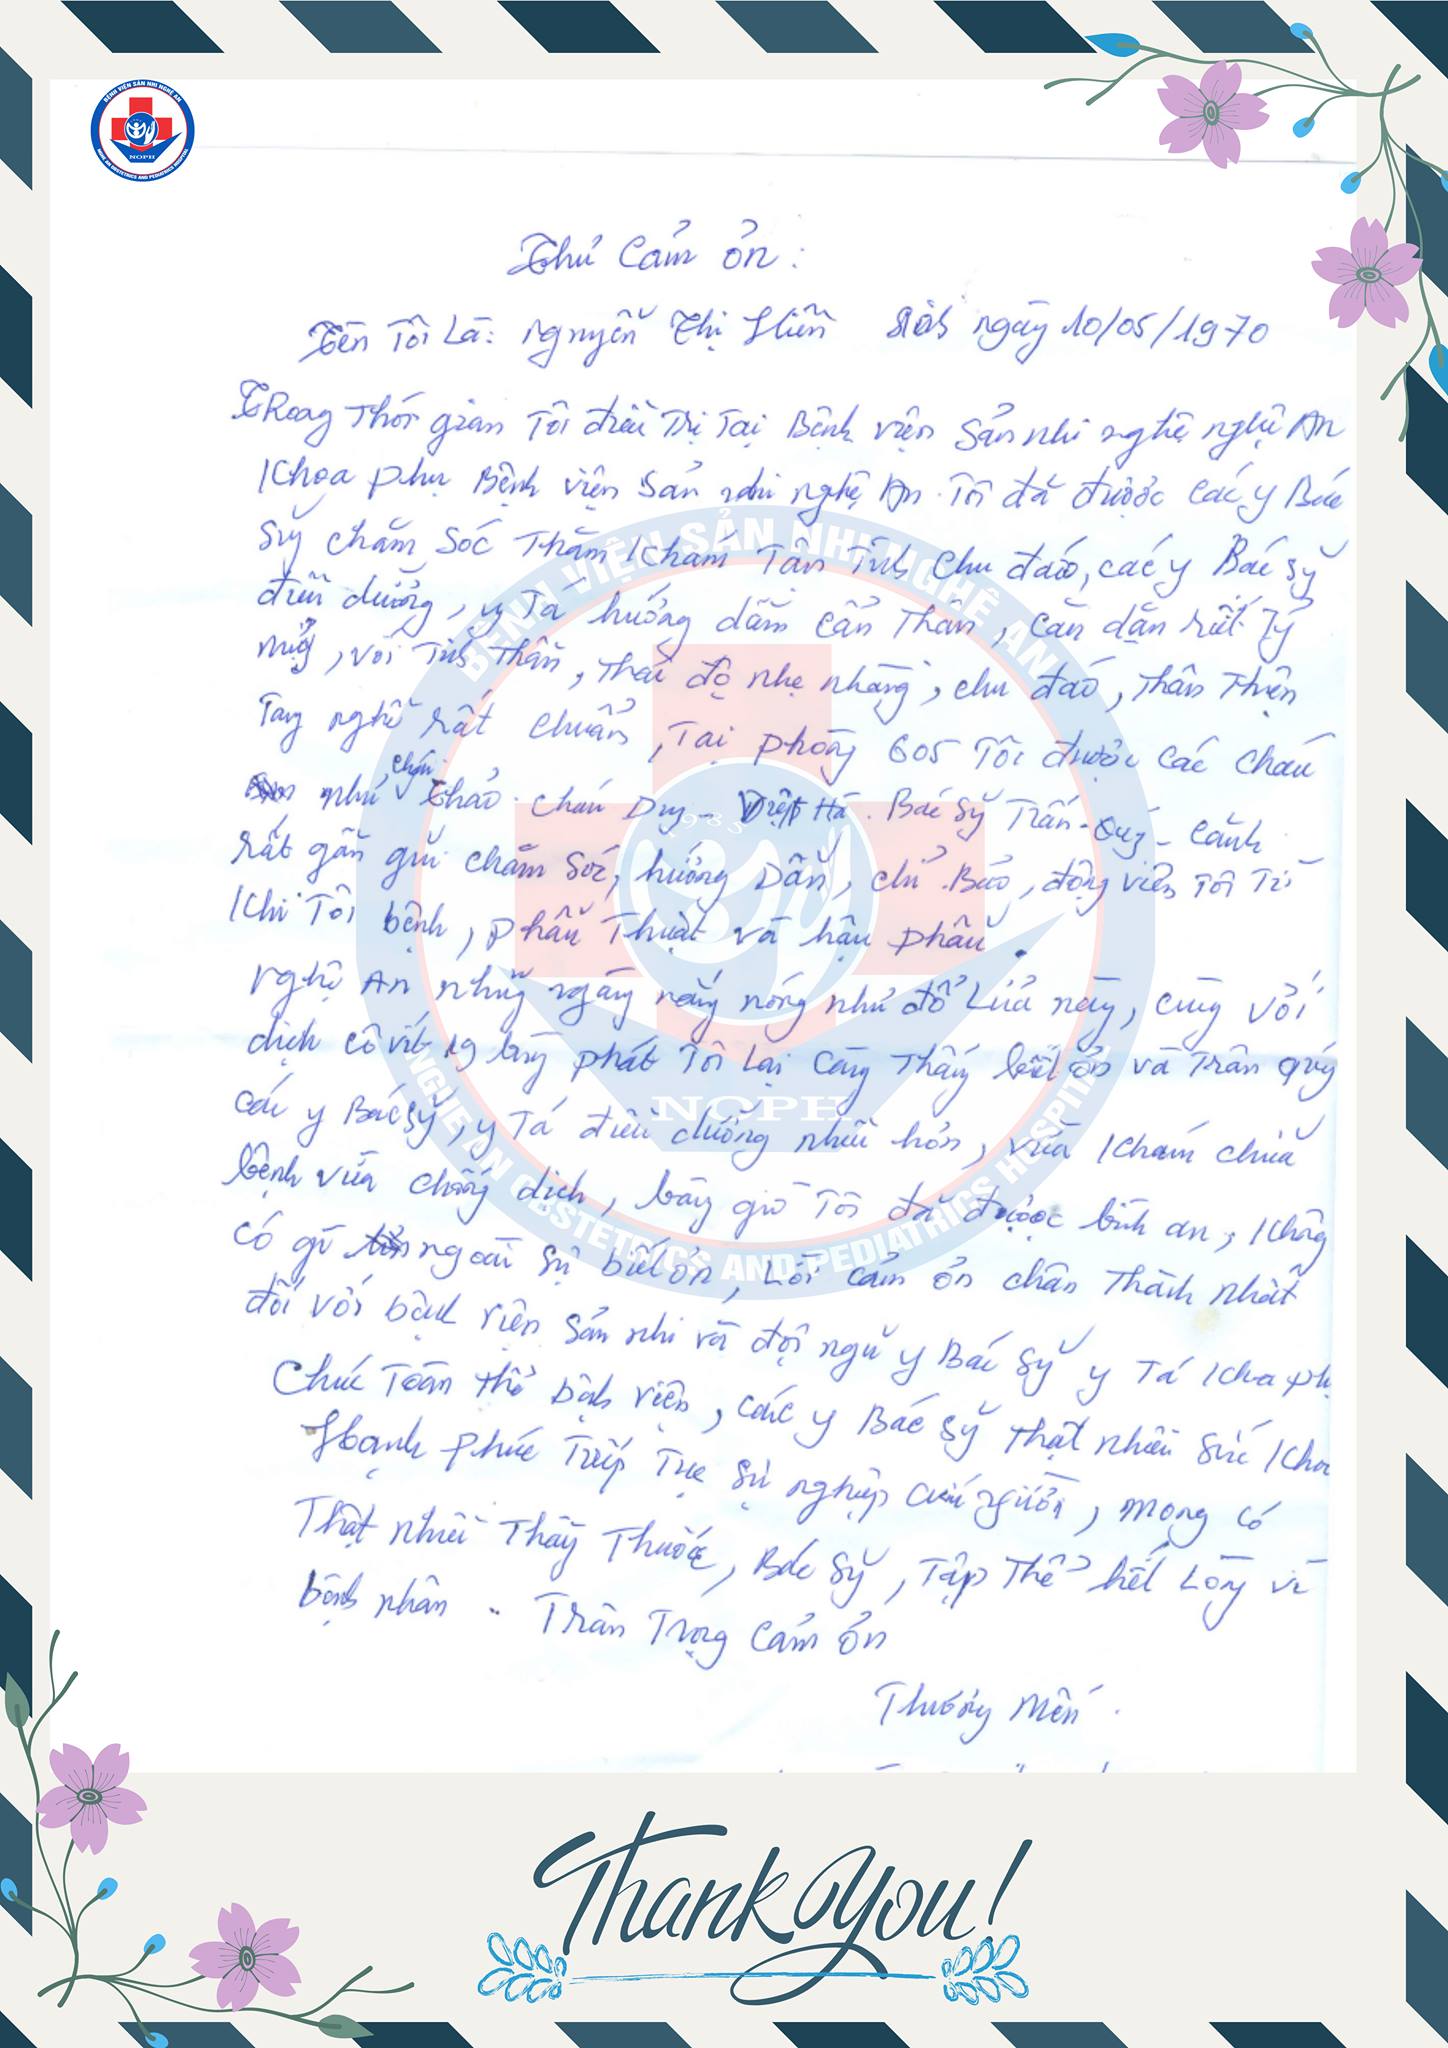 BỆNH VIỆN SẢN NHI NGHỆ AN
NOPH
NGHE AN OBSTETRICS AND PEDIATRICS HOSPITAL
Thư Cảm ơn:
Tên Tôi Là: Nguyễn Thị Hiền Sinh ngày 10/05/1970
TRong Thời gian Tôi điều Trị Tại Bệnh viện Sản nhi nghệ nghệ An
Khoa phụ Bệnh viện Sản nhi nghệ An. Tôi đã được các y Bác
Sỹ chăm Sóc Thăm Khám Tận Tình Chu đáo, các y Bác Sỹ
điều dưỡng, y Tá hướng dẫn cẩn Thận, căn dặn rất Tỷ
mỷ, với Tinh Thần, Thái độ nhẹ nhàng, chu đáo, Thân Thiện
Tay nghề rất chuẩn, Tại phòng 605 Tôi được các cháu
như cháu Thảo. cháu Duy - Diệp Hà. Bác Sỹ Trấn - Quý - Cảnh
rất gần gũi chăm Sóc, hướng Dẫn, chỉ Bảo, động viên Tôi Từ
Khi Tôi bệnh, phẫu Thuật và hậu phẫu.
Nghệ An những ngày nắng nóng như đổ Lửa này, cùng với
dịch cô vít 19 bùng phát Tôi Lại càng Thấy biết ơn và Trân quý
các y Bác sỹ, y Tá điều dưỡng nhiều hơn, vừa Khám chữa
bệnh vừa chống dịch, bây giờ Tôi đã được bình an, không
có gì ngoài Sự biết ơn, Lời cảm ơn chân Thành nhất
đối với bệnh viện Sản nhi và đội ngũ y Bác Sỹ y Tá Khoa phụ
Chúc Toàn thể bệnh viện, các y Bác Sỹ Thật nhiều Sức Khoẻ
Hạnh phúc Tiếp Tục Sự nghiệp cứu người, mong có
Thật nhiều Thầy Thuốc, Bác Sỹ, Tập Thể hết Lòng vì
bệnh nhân.. Trân Trọng Cảm ơn
Thương Mến.
BỆNH VIỆN SẢN NHI NGHỆ AN
1985
NOPH
NGHE AN OBSTETRICS AND PEDIATRICS HOSPITAL
Thank You!